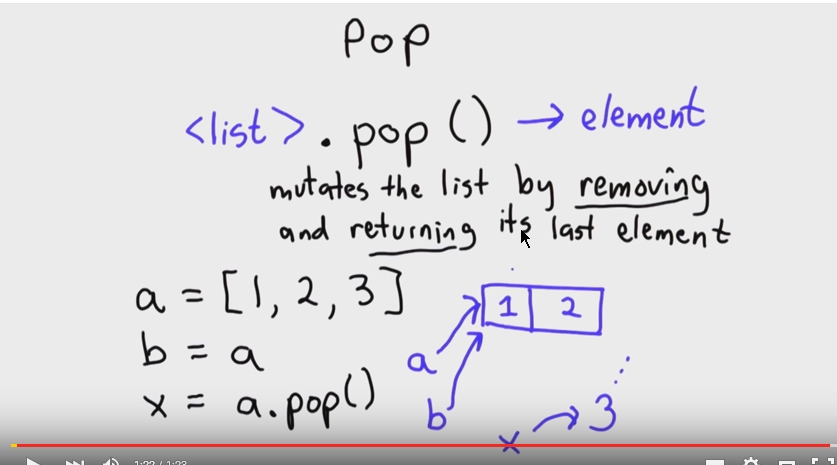 Pop
<list>.pop() → element
mutates the list by removing
and returning its last element
a = [1, 2, 3]
1 2
b = a
a
x = a.pop()
b
x → 3
1:22 / 1:23